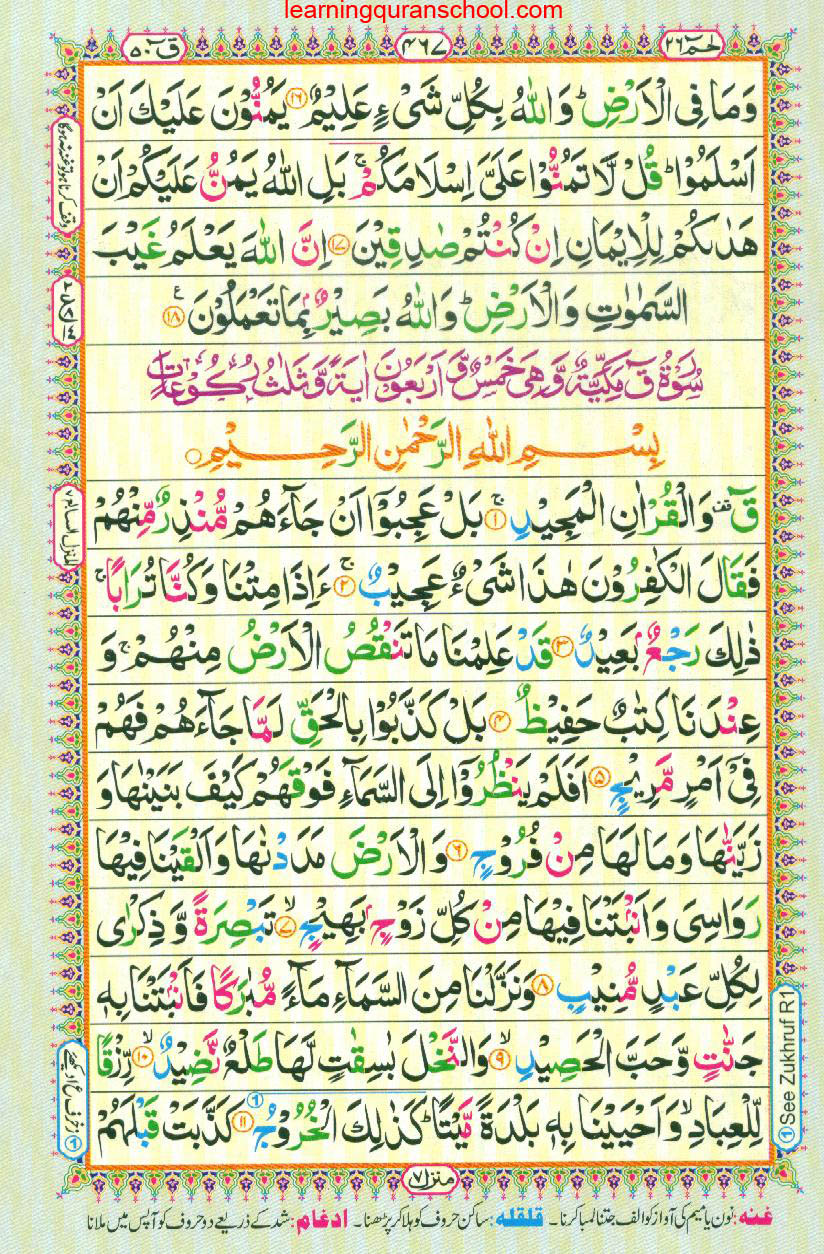 learningquranschool.com
حٰمٓ ۲۶
۴۶۷
قٓ ۵۰
وَمَا فِی الْاَرْضِ ؕ وَاللّٰهُ بِكُلِّ شَیْءٍ عَلِیْمٌ ﴿۱۶﴾ یَمُنُّوْنَ عَلَیْكَ اَنْ
اَسْلَمُوْا ؕ قُلْ لَّا تَمُنُّوْا عَلَیَّ اِسْلَامَكُمْ ۚ بَلِ اللّٰهُ یَمُنُّ عَلَیْكُمْ اَنْ
هَدٰىكُمْ لِلْاِیْمَانِ اِنْ كُنْتُمْ صٰدِقِیْنَ ﴿۱۷﴾ اِنَّ اللّٰهَ یَعْلَمُ غَیْبَ
السَّمٰوٰتِ وَالْاَرْضِ ؕ وَاللّٰهُ بَصِیْرٌۢ بِمَا تَعْمَلُوْنَ ﴿۱۸﴾ ع
سُوْرَةُ قٓ مَكِّیَّةٌ وَّهِیَ خَمْسٌ وَّ اَرْبَعُوْنَ اٰیَةً وَّ ثَلٰثُ رُكُوْعَاتٍ
بِسْمِ اللّٰهِ الرَّحْمٰنِ الرَّحِیْمِ
قٓ ۫ وَالْقُرْاٰنِ الْمَجِیْدِ ﴿۱﴾ ۚ بَلْ عَجِبُوْۤا اَنْ جَآءَهُمْ مُّنْذِرٌ مِّنْهُمْ
فَقَالَ الْكٰفِرُوْنَ هٰذَا شَیْءٌ عَجِیْبٌ ﴿۲﴾ ۚ ءَاِذَا مِتْنَا وَكُنَّا تُرَابًا ۚ
ذٰلِكَ رَجْعٌۢ بَعِیْدٌ ﴿۳﴾ قَدْ عَلِمْنَا مَا تَنْقُصُ الْاَرْضُ مِنْهُمْ ۚ وَ
عِنْدَنَا كِتٰبٌ حَفِیْظٌ ﴿۴﴾ بَلْ كَذَّبُوْا بِالْحَقِّ لَمَّا جَآءَهُمْ فَهُمْ
فِیْۤ اَمْرٍ مَّرِیْجٍ ﴿۵﴾ اَفَلَمْ یَنْظُرُوْۤا اِلَی السَّمَآءِ فَوْقَهُمْ كَیْفَ بَنَیْنٰهَا وَ
زَیَّنّٰهَا وَمَا لَهَا مِنْ فُرُوْجٍ ﴿۶﴾ وَالْاَرْضَ مَدَدْنٰهَا وَاَلْقَیْنَا فِیْهَا
رَوَاسِیَ وَاَنْۢبَتْنَا فِیْهَا مِنْ كُلِّ زَوْجٍۭ بَهِیْجٍ ﴿۷﴾ ۙ تَبْصِرَةً وَّ ذِكْرٰی
لِكُلِّ عَبْدٍ مُّنِیْبٍ ﴿۸﴾ وَنَزَّلْنَا مِنَ السَّمَآءِ مَآءً مُّبٰرَكًا فَاَنْۢبَتْنَا بِهٖ
جَنّٰتٍ وَّحَبَّ الْحَصِیْدِ ﴿۹﴾ ۙ وَالنَّخْلَ بٰسِقٰتٍ لَّهَا طَلْعٌ نَّضِیْدٌ ﴿۱۰﴾ ۙ رِّزْقًا
لِّلْعِبَادِ ۙ وَاَحْیَیْنَا بِهٖ بَلْدَةً مَّیْتًا ؕ كَذٰلِكَ الْخُرُوْجُ ① ﴿۱۱﴾ كَذَّبَتْ قَبْلَهُمْ
① See Zukhruf R1
منزل ۷
غنه: نون یا میم کی آواز کو الف جتنا لمبا کرنا۔ قلقله: ساکن حروف کو ہلا کر پڑھنا۔ ادغام: شد کے ذریعے دو حروف کو آپس میں ملانا